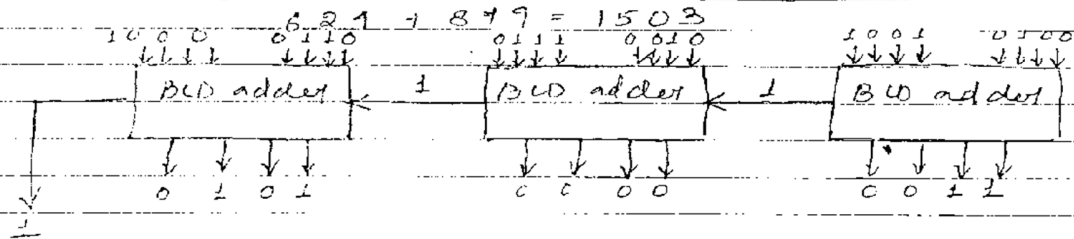 624 + 879 = 1503
1000 0110 0111 0010 1001 0100
BCD adder 1 BCD adder 1 BCD adder
0 1 0 1 0 0 0 0 0 0 1 1
1